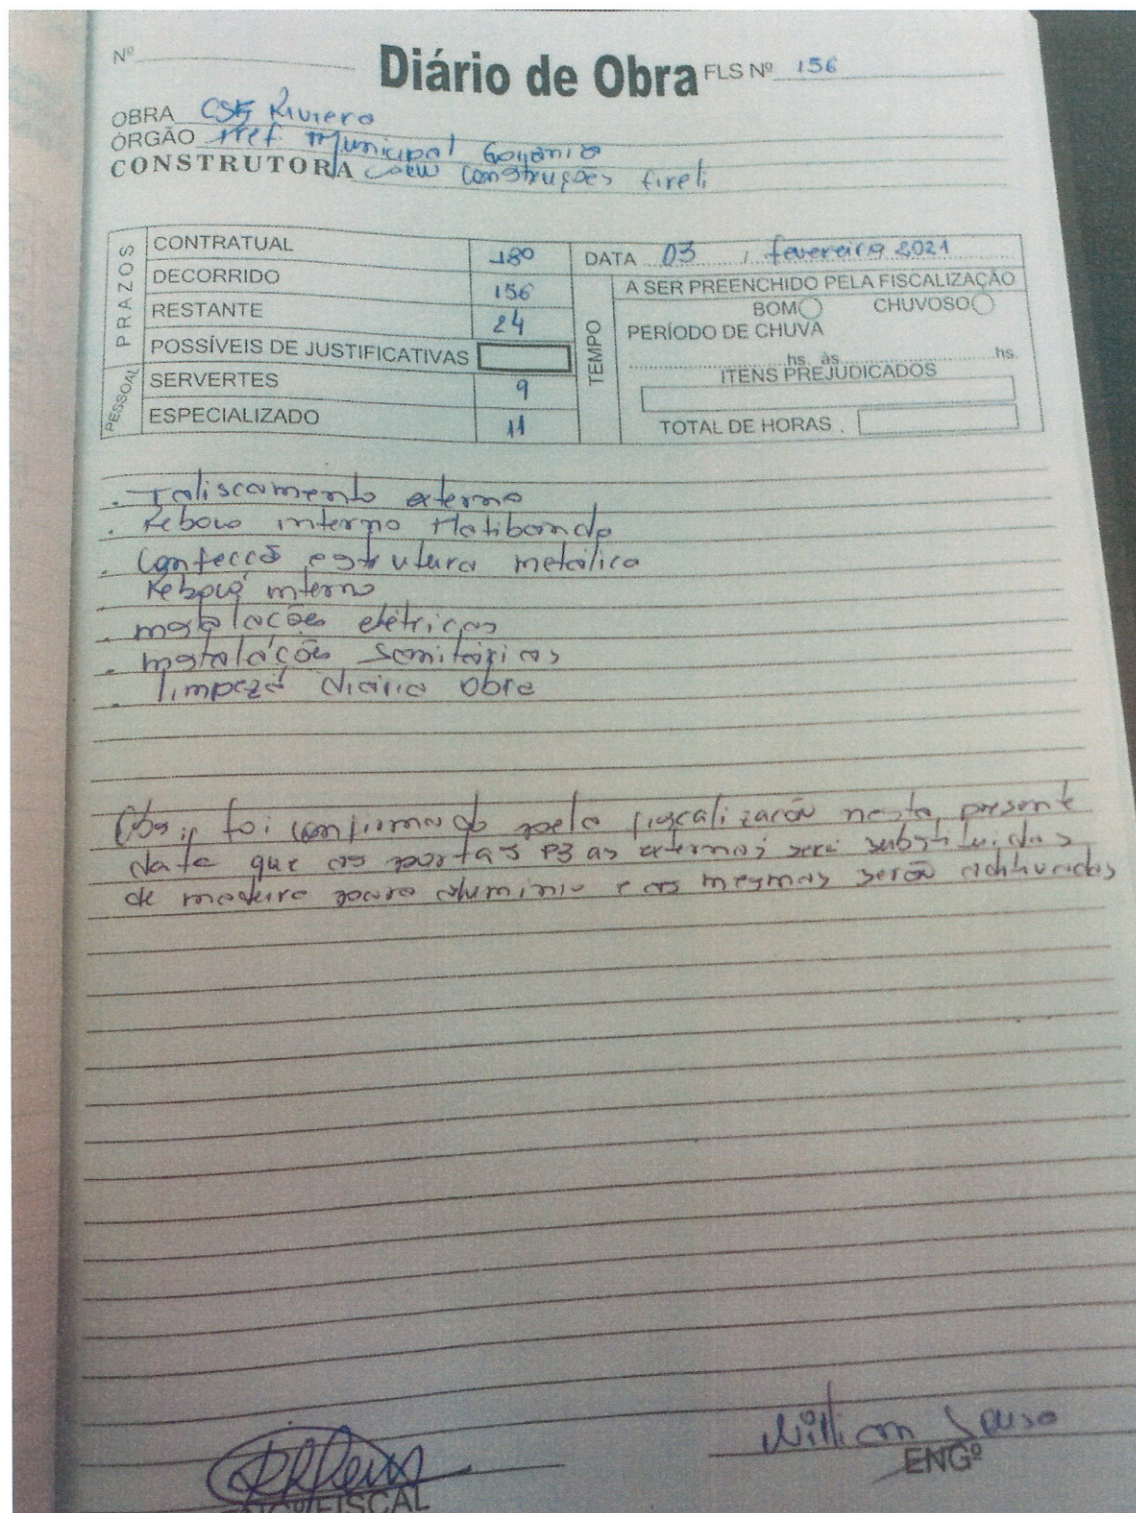 Nº
Diário de Obra FLS Nº 156
OBRA CSF Riviera
ÓRGÃO Pref. Municipal Goiânia
CONSTRUTORA Construções Eireli
PRAZOS
CONTRATUAL 180
DECORRIDO 156
RESTANTE 24
POSSÍVEIS DE JUSTIFICATIVAS
PESSOAL
SERVERTES 9
ESPECIALIZADO 11
DATA 03 , fevereiro 2021
TEMPO
A SER PREENCHIDO PELA FISCALIZAÇÃO
BOM CHUVOSO
PERÍODO DE CHUVA
hs. às hs.
ITENS PREJUDICADOS
TOTAL DE HORAS
. Taliscamento externo
. Reboco interno Platibanda
. Confecçõ estrutura metálica
Reboco interno
. instalações elétricas
. instalações sanitárias
. limpeza diária obra
Obs: foi confirmado pela fiscalização nesta presente
data que as portas P3 as externas será substituidas
de madeira para aluminio e as mesmas serão aditivadas
William Souso
ENGº
ENGº FISCAL